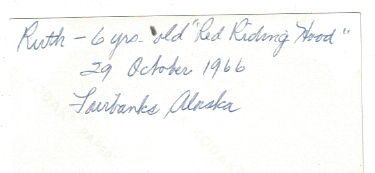 Ruth - 6 yrs. old "Red Riding Hood"
29 October 1966
Fairbanks, Alaska